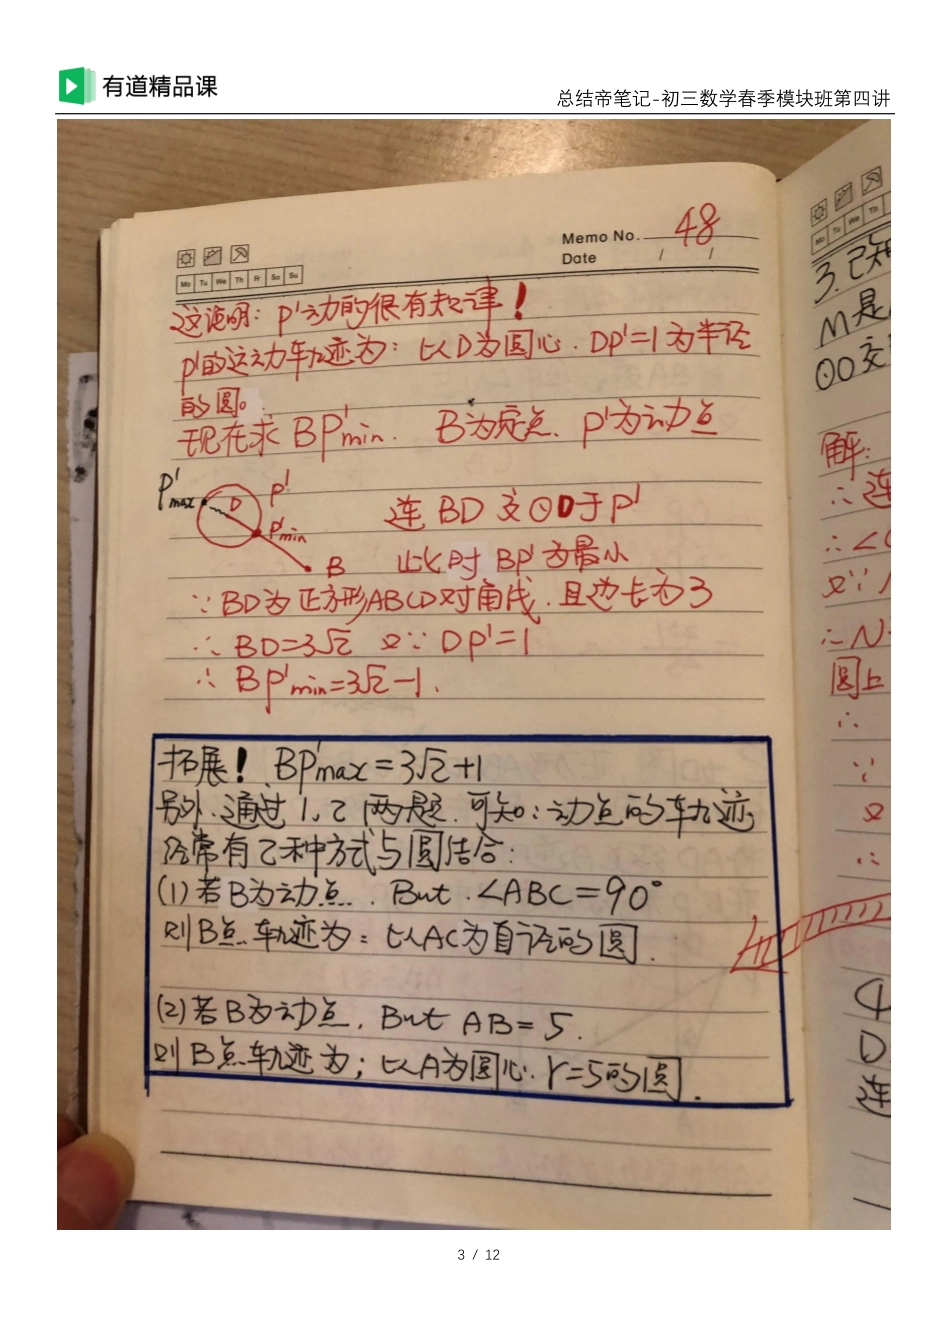 有道精品课
总结帝笔记-初三数学春季模块班第四讲
Memo No. 48
Date / /
Mo Tu We Th Fr Sa Su
这说明：P'动的很有规律！
P'的运动轨迹为：以D为圆心．DP'=1为半径
的圆。
现在求BP'min． B为定点、P'为动点
P'max D P' P'min B
连BD交⊙D于P'
此时BP'为最小
∵BD为正方形ABCD对角线．且边长为3
∴BD=3√2 又∵DP'=1
∴BP'min=3√2-1．
拓展！BP'max=3√2+1
另外．通过1、2两题．可知：动点的轨迹
经常有2种方式与圆结合：
(1)若B为动点．But．∠ABC=90°
则B点轨迹为：以AC为直径的圆．
(2)若B为动点．But AB=5．
则B点轨迹为；以A为圆心．r=5的圆．
Mo Tu We Th
3.已知
M是
⊙O交
解：
∴连
∴∠
又∵
∴N
圆上
∴
∵
又
∴
4
D
连
3 / 12